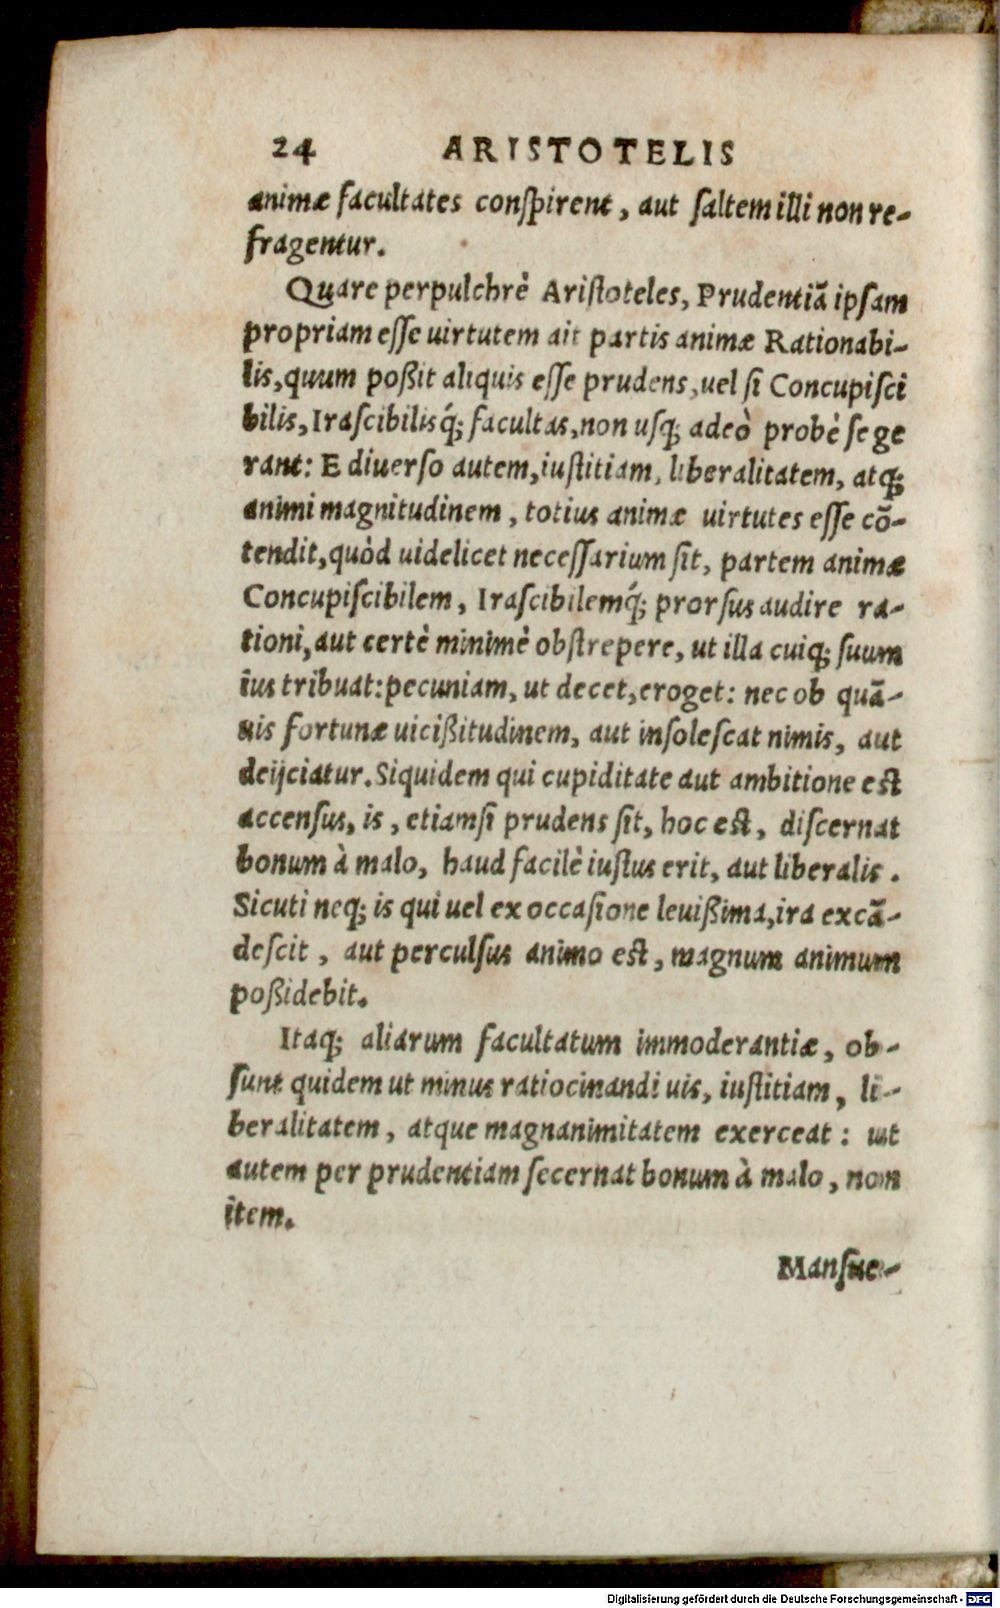 24 ARISTOTELIS
animæ facultates conſpirent, aut ſaltem illi non re-
fragentur.
Quare perpulchrè Ariſtoteles, Prudentiã ipſam
propriam eſſe uirtutem ait partis animæ Rationabi-
lis, quum poßit aliquis eſſe prudens, uel ſi Concupiſci
bilis, Iraſcibilisq́; facultas, non uſq; adeò probè ſe ge
rant: E diuerſo autem, iuſtitiam, liberalitatem, atq;
animi magnitudinem, totius animæ uirtutes eſſe cõ-
tendit, quòd uidelicet neceſſarium ſit, partem animæ
Concupiſcibilem, Iraſcibilemq́; prorſus audire ra-
tioni, aut certè minimè obſtrepere, ut illa cuiq; ſuum
ius tribuat: pecuniam, ut decet, eroget: nec ob quã-
uis fortunæ uicißitudinem, aut inſoleſcat nimis, aut
deijciatur. Siquidem qui cupiditate aut ambitione eſt
accenſus, is, etiamſi prudens ſit, hoc eſt, diſcernat
bonum à malo, haud facilè iuſtus erit, aut liberalis.
Sicuti neq; is qui uel ex occaſione leuißima, ira excã-
deſcit, aut perculſus animo eſt, magnum animum
poßidebit.
Itaq; aliarum facultatum immoderantiæ, ob-
ſunt quidem ut minus ratiocinandi uis, iuſtitiam, li-
beralitatem, atque magnanimitatem exerceat: ut
autem per prudentiam ſecernat bonum à malo, non
item.
Manſue-
Digitalisierung gefördert durch die Deutsche Forschungsgemeinschaft - DFG